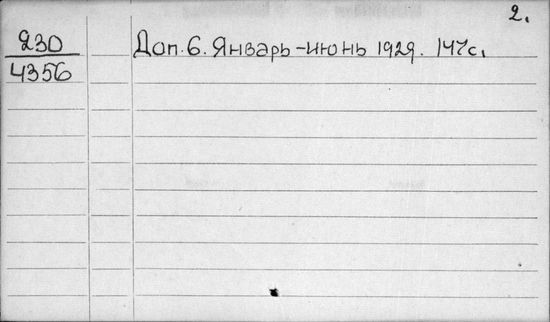 2.
230
4356
Доп. 6. Январь-июнь 1929. 147с.